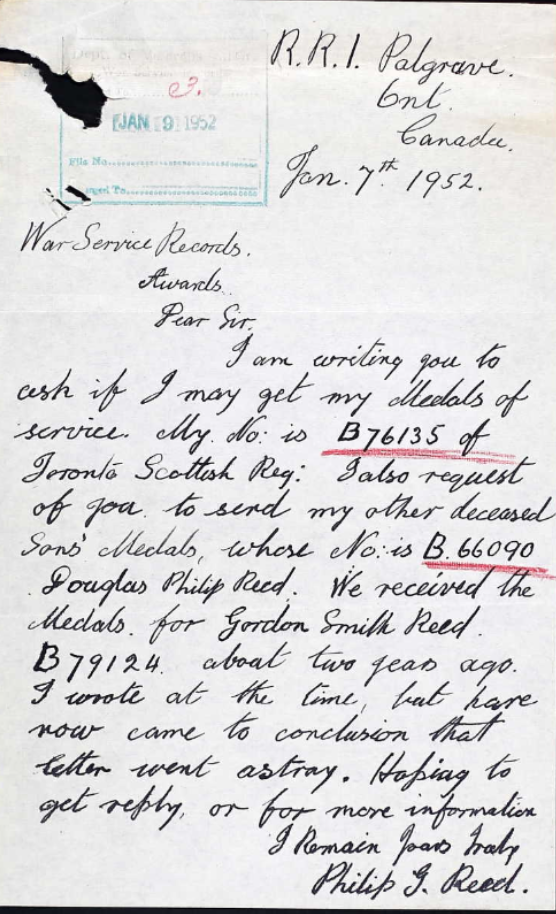 R.R.1. Palgrave.
Ont.
Canada.
Jan. 7th 1952.
Dept. of
3.
JAN 9 1952
File No.
To
War Service Records.
Awards.
Dear Sir,
I am writing you to
ask if I may get my Medals of
service. My. No: is B76135 of
Toronto Scottish Reg: I also request
of you. to send my other deceased
Sons' Medals, whose No: is B. 66090
Douglas Philip Reed. We received the
Medals. for Gordon Smith Reed.
B79124. about two years ago.
I wrote at the time, but have
now came to conclusion that
letter went astray. Hoping to
get reply, or for more information
I Remain Yours Truly
Philip G. Reed.